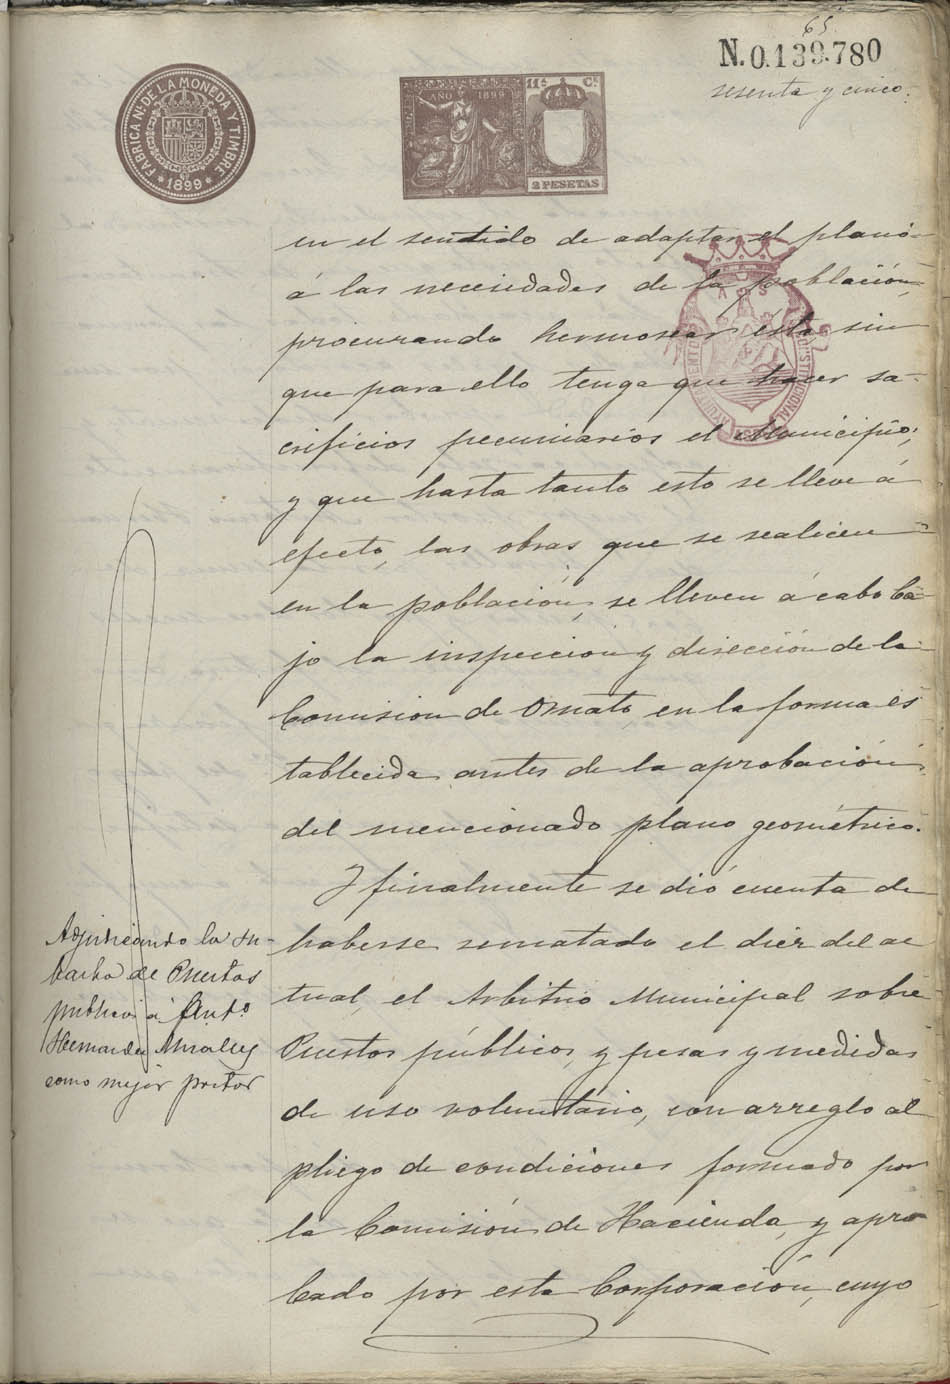 65
N.0.139.780
sesenta y cinco.
FABRICA NL. DE LA MONEDA Y TIMBRE
* 1899 *
AÑO 1899
11ª Cº
2 PESETAS
en el sentido de adaptar el plano
á las necesidades de la población,
procurando hermosear ésta sin
que para ello tenga que hacer sa-
crificios pecuniarios el Municipio;
y que hasta tanto esto se lleve á
efecto, las obras que se realicen
en la población, se lleven á cabo ba-
jo la inspección y dirección de la
Comision de Ornato, en la forma es
tablecida antes de la aprobación
del mencionado plano geométrico.
Y finalmente se dió cuenta de
haberse rematado el diez del ac
tual, el Arbitrio Municipal sobre
Puestos públicos, y pesas y medidas
de uso voluntario, con arreglo al
pliego de condiciones formado por
la Comisión de Hacienda, y apro
bado por esta Corporación, cuyo
Adjudicando la su-
basta de Puestos
publicos á Anto.
Hernandez Miralles
como mejor postor
AYUNTAMIENTO CONSTITUCIONAL